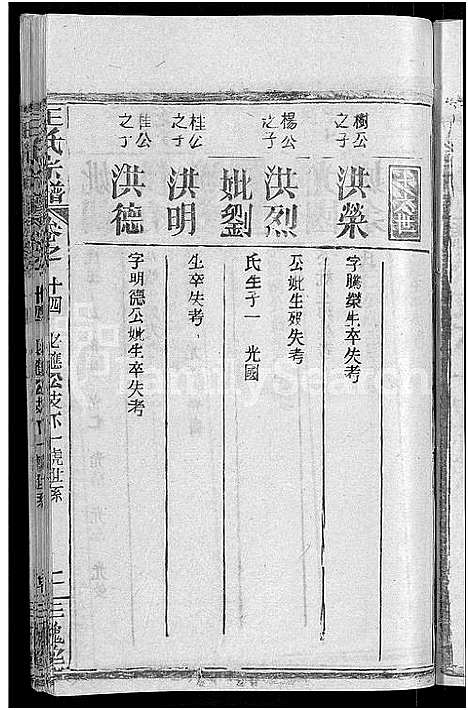 十六世
樹公之子
洪榮
字騰榮生卒失考
楊公之子
洪烈
公妣生殁失考
妣劉
氏生子一 光國
桂公之子
洪明
生卒失考
桂公之子
洪德
字明德公妣生卒失考
王氏宗譜
卷之十四
三槐堂
FamilySearch